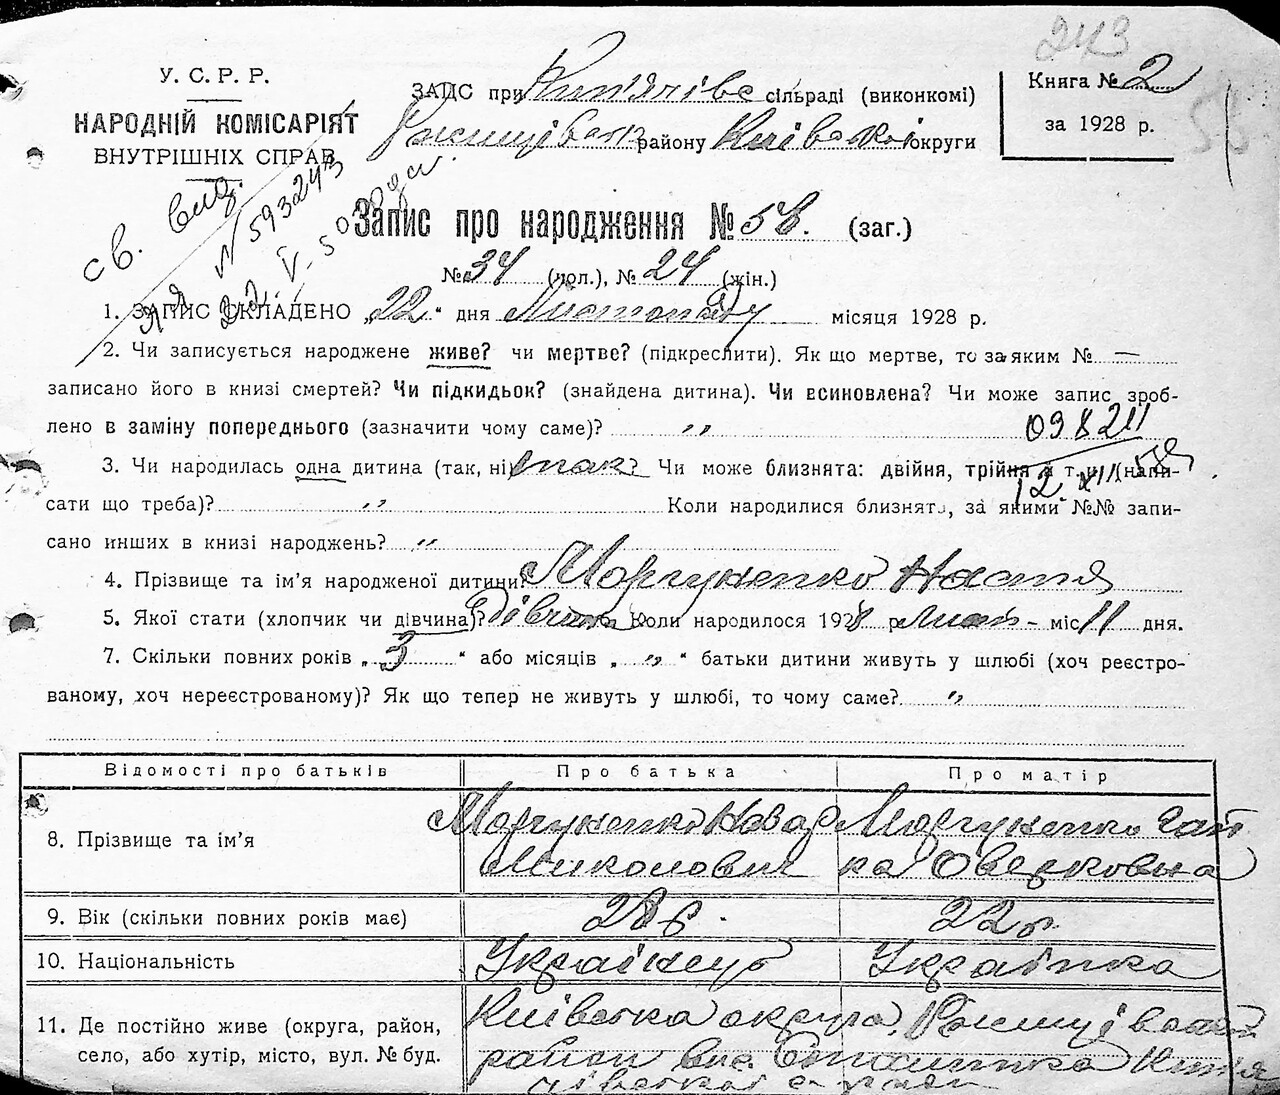 243
У. С. Р. Р.
НАРОДНІЙ КОМІСАРІЯТ
ВНУТРІШНІХ СПРАВ
ЗАПИС при сільраді (виконкомі)
району Київської округи
Книга № 2
за 1928 р.
58
св. вид.
№ 593243
22. V- 50 года
Запис про народження № 58. (заг.)
№ 34 (чол.), № 24 (жін.)
1. ЗАПИС СКЛАДЕНО „22“ дня Листопаду місяця 1928 р.
2. Чи записується народжене живе? чи мертве? (підкреслити). Як що мертве, то за яким № —
записано його в книзі смертей? Чи підкидьок? (знайдена дитина). Чи всиновлена? Чи може запис зроб-
лено в заміну попереднього (зазначити чому саме)? „
3. Чи народилась одна дитина (так, ні) так? Чи може близнята: двійня, трійня і т. и. (напи-
сати що треба)? „ Коли народилися близнята, за якими №№ запи-
сано инших в книзі народжень? „
4. Прізвище та ім’я народженої дитини? Моргуненко Настя
5. Якої стати (хлопчик чи дівчина)? дівчинка Коли народилося 1928 р. Лист- міс 11 дня.
7. Скільки повних років „3“ або місяців „ „ “ батьки дитини живуть у шлюбі (хоч реєстро-
ваному, хоч нереєстрованому)? Як що тепер не живуть у шлюбі, то чому саме? „
Відомості про батьків Про батька Про матір
8. Прізвище та ім’я Моргуненко Моргуненко Гап
Миколович ка Оверковна
9. Вік (скільки повних років має) 28 р. 22 р.
10. Національність Українець Українка
11. Де постійно живе (округа, район, Київська округа,
село, або хутір, місто, вул. № буд. район